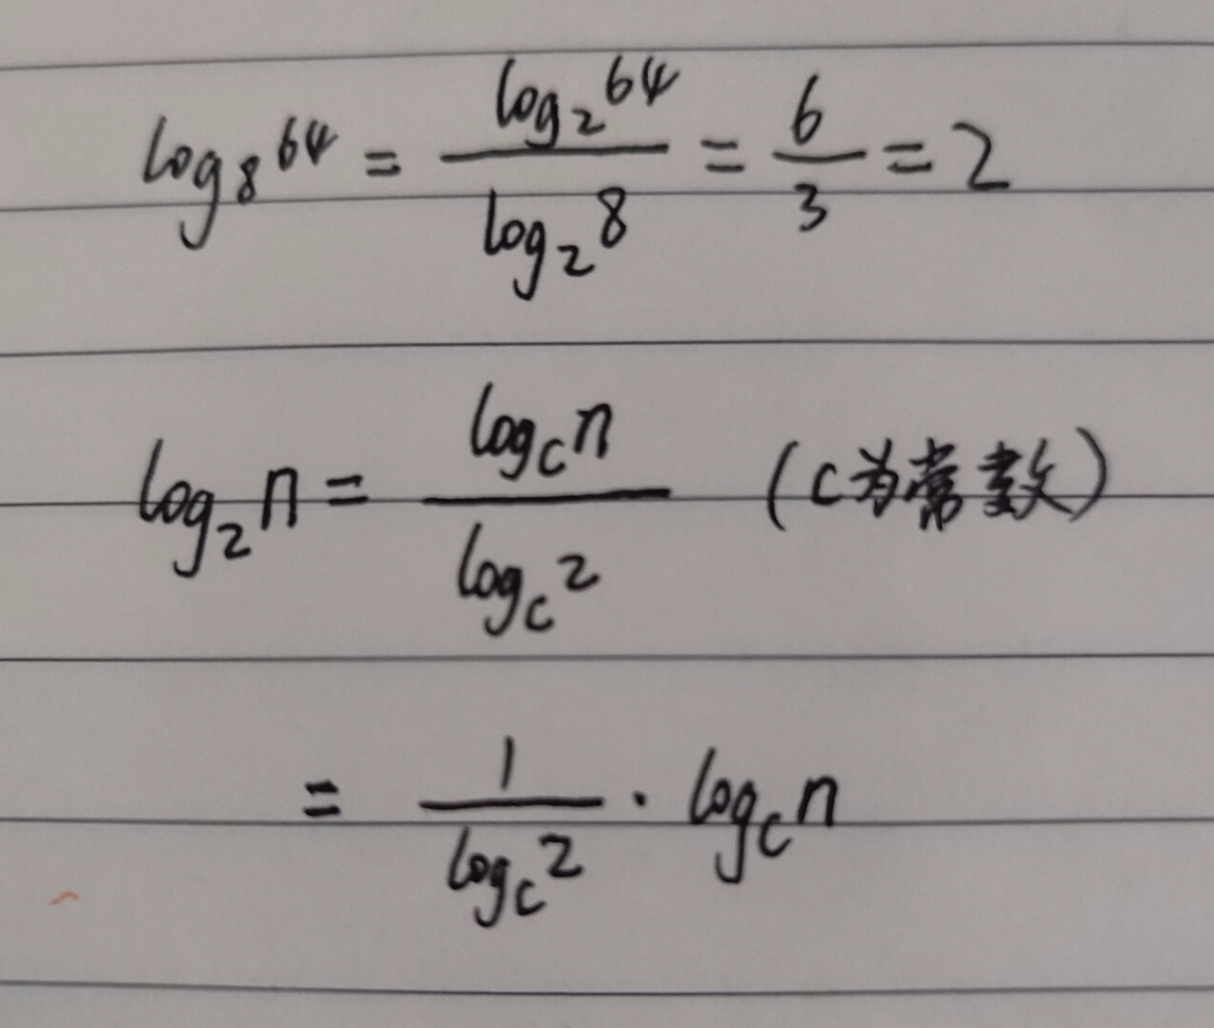 log₈64 = log₂64 / log₂8 = 6/3 = 2
log₂n = log_c n / log_c 2 (c为常数)
= 1 / log_c 2 · log_c n